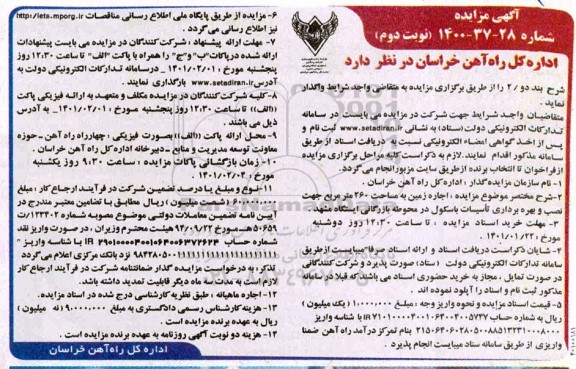 آگهی مزایده
شماره ۲۸-۳۷-۱۴۰۰ (نوبت دوم)
اداره کل راه‌آهن خراسان در نظر دارد
شرح بند دو / ۲ را از طریق برگزاری مزایده به متقاضی واجد شرایط واگذار
نماید.
متقاضیان واجد شرایط جهت شرکت در مزایده می بایست در سامانه
تدارکات الکترونیکی دولت (ستاد) به نشانی www.setadiran.ir ثبت نام و
پس از اخذ گواهی امضاء الکترونیکی نسبت به دریافت اسناد از طریق
سامانه مذکور اقدام نمایند. لازم به ذکر است کلیه مراحل برگزاری مزایده
از فراخوان تا انتخاب برنده از طریق سایت مزبور انجام می‌گردد.
۱- نام سازمان مزایده گذار : اداره کل راه آهن خراسان.
۲- شرح مختصر موضوع مزایده : اجاره زمین به مساحت ۳۶۰ مترمربع جهت
نصب و بهره برداری تأسیسات باسکول در محوطه بازرگانی ایستگاه مشهد
۳- مهلت خرید اسناد مزایده : تا ساعت ۱۴:۳۰ روز دوشنبه
مورخ ۱۴۰۱/۰۱/۲۲.
۴- شایان ذکر است دریافت اسناد و ارائه اسناد صرفا" میبایست از طریق
سامانه تدارکات الکترونیکی دولت (ستاد) صورت پذیرد و شرکت کنندگانی
در صورت تمایل، مجاز به خرید حضوری اسناد می باشند که قبلا در سامانه
مذکور ثبت نام و اسناد را آپلود نموده اند.
۵- قیمت اسناد مزایده و نحوه واریز وجه : مبلغ ۱.۰۰۰.۰۰۰ (یک میلیون)
واریزی از طریق سامانه ستاد میبایست انجام پذیرد.
۶- مزایده از طریق پایگاه ملی اطلاع رسانی مناقصات http://iets.mporg.ir
نیز اطلاع رسانی می گردد.
۷- مهلت ارائه پیشنهاد : شرکت کنندگان در مزایده می بایست پیشنهادات
ارائه شده در پاکات "ب" و "ج" را همراه با پاکت "الف" تا ساعت ۱۲:۳۰ روز
پنجشنبه مورخ ۱۴۰۱/۰۲/۰۱ درسامانه تدارکات الکترونیکی دولت به
آدرس www.setadiran.ir بارگذاری نمایند.
۸- کلیه شرکت کنندگان در مزایده مکلف و متعهد به ارائه فیزیکی پاکت
((الف)) تا ساعت ۱۲:۳۰ روز پنجشنبه مورخ ۱۴۰۱/۰۲/۰۱ به آدرس
ذیل می باشند.
۹- محل ارائه پاکت ((الف)) بصورت فیزیکی : چهارراه راه آهن - حوزه
معاونت توسعه مدیریت و منابع - دبیرخانه اداره کل راه آهن خراسان.
۱۰- زمان بازگشائی پاکات مزایده : ساعت ۹:۳۰ روز یکشنبه
مورخ ۱۴۰۱/۰۲/۰۴.
۱۱- نوع و مبلغ یا درصد تضمین شرکت در فرآیند ارجاع کار : مبلغ
میلیون ریال مطابق با تضامین معتبر مندرج در
آیین نامه تضمین معاملات دولتی موضوع مصوبه شماره ۱۲۳۴۰۲/ت
۵۰۶۵۹ هـ مورخ ۹۴/۰۹/۲۲ هیئت محترم وزیران، در صورت واریز نقد
نزد بانک مرکزی اعلام می گردد
تذکر : به درخواست مزایده گذار ضمانتنامه شرکت در فرآیند ارجاع کار
لازم است به مدت سه ماه دیگر قابلیت تمدید داشته باشد.
۱۲- اجاره ماهیانه : طبق نظریه کارشناسی درج شده در اسناد مزایده.
۱۳- هزینه کارشناس رسمی دادگستری به مبلغ ۹.۰۰۰.۰۰۰ (نه میلیون)
ریال به عهده برنده مزایده است.
۱۴- هزینه دو نوبت آگهی روزنامه به عهده برنده مزایده است.
اداره کل راه آهن خراسان